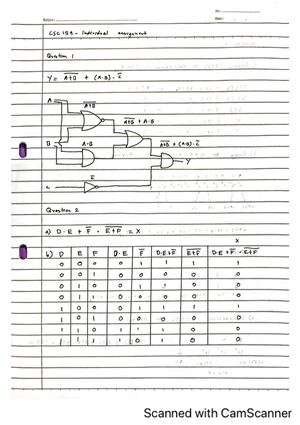 No:
Date:
CSC 159 - Individual assignment
Question 1
Y = A+B + (A·B) · C
A
A+B
A+B + A·B
B
A·B
A+B + (A·B) · C
Y
C
C
Question 2
a) D·E + F · E+F = X
X
b) D E F D·E F D·E+F E+F D·E+F · E+F
0 0 0 0 1 1 1 1
0 0 1 0 0 0 0 0
0 1 0 0 1 1 0 0
0 1 1 0 0 0 0 0
1 0 0 0 1 1 1 1
1 0 1 0 0 0 0 0
1 1 0 1 1 1 0 0
1 1 1 1 0 1 0 0
Scanned with CamScanner